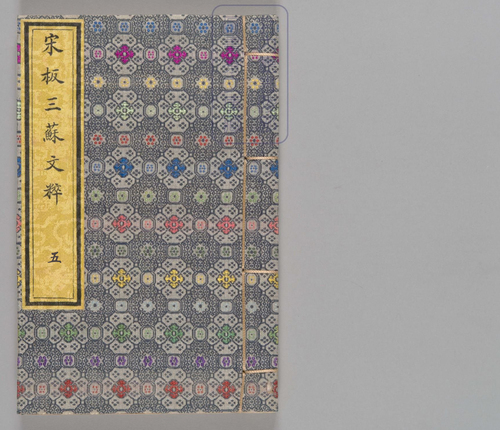 宋板三蘇文粹
五